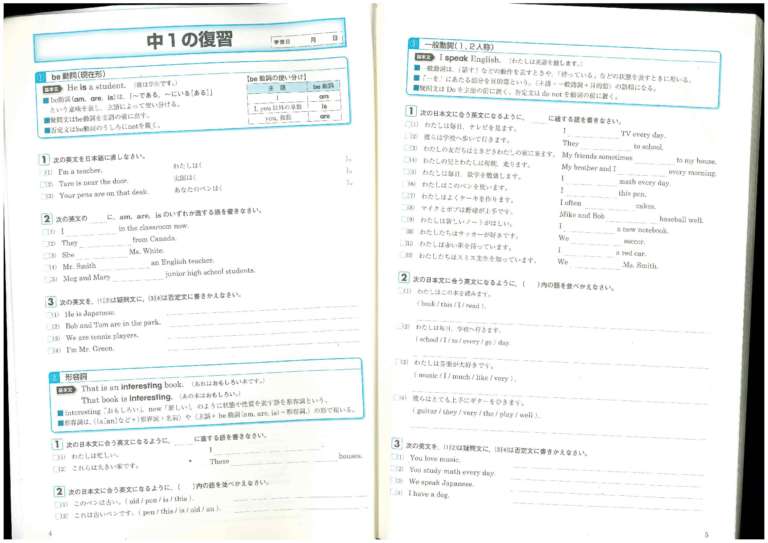 中１の復習
学習日 月 日
1 be 動詞(現在形)
基本文 He is a student. (彼は学生です。)
■be動詞(am, are, is)は，「～である，～にいる[ある]」
という意味を表し，主語によって使い分ける。
■疑問文はbe動詞を主語の前に出す。
■否定文はbe動詞のうしろにnotを置く。
【be 動詞の使い分け】
主 語 be動詞
I am
I, you 以外の単数 is
you, 複数 are
1 次の英文を日本語に直しなさい。
(1) I'm a teacher. わたしは( )。
(2) Taro is near the door. 太郎は( )。
(3) Your pens are on that desk. あなたのペンは( )。
2 次の英文の＿＿に，am, are, is のいずれか適する語を書きなさい。
(1) I ＿＿ in the classroom now.
(2) They ＿＿ from Canada.
(3) She ＿＿ Ms. White.
(4) Mr. Smith ＿＿ an English teacher.
(5) Meg and Mary ＿＿ junior high school students.
3 次の英文を，(1)(2)は疑問文に，(3)(4)は否定文に書きかえなさい。
(1) He is Japanese.
(2) Bob and Tom are in the park.
(3) We are tennis players.
(4) I'm Mr. Green.
2 形容詞
基本文 That is an interesting book. (あれはおもしろい本です。)
That book is interesting. (あの本はおもしろい。)
■interesting「おもしろい」，new「新しい」のように状態や性質を表す語を形容詞という。
■形容詞は，〈(a[an]など＋)形容詞＋名詞〉や〈主語＋be 動詞(am, are, is)＋形容詞.〉の形で使いる。
1 次の日本文に合う英文になるように，＿＿に適する語を書きなさい。
(1) わたしは忙しい。 I ＿＿
(2) これらは大きい家です。 These ＿＿ houses.
2 次の日本文に合う英文になるように，( )内の語を並べかえなさい。
(1) このペンは古い。( old / pen / is / this ).
(2) これは古いペンです。( pen / this / is / old / an ).
4
3 一般動詞(１，２人称)
基本文 I speak English. (わたしは英語を話します。)
■一般動詞は，「話す」などの動作を表すときや，「持っている」などの状態を表すときに用いる。
■「～を」にあたる部分を目的語という。〈主語＋一般動詞＋目的語〉の語順になる。
■疑問文は Do を主語の前に置く。否定文は do not を動詞の前に置く。
1 次の日本文に合う英文になるように，＿＿に適する語を書きなさい。
(1) わたしは毎日，テレビを見ます。 I ＿＿ TV every day.
(2) 彼らは学校へ歩いて行きます。 They ＿＿ to school.
(3) わたしの友だちはときどきわたしの家に来ます。 My friends sometimes ＿＿ to my house.
(4) わたしの兄とわたしは毎朝，走ります。 My brother and I ＿＿ every morning.
(5) わたしは毎日，数学を勉強します。 I ＿＿ math every day.
(6) わたしはこのペンを使います。 I ＿＿ this pen.
(7) わたしはよくケーキを作ります。 I often ＿＿ cakes.
(8) マイクとボブは野球が上手です。 Mike and Bob ＿＿ baseball well.
(9) わたしは新しいノートがほしい。 I ＿＿ a new notebook.
(10) わたしたちはサッカーが好きです。 We ＿＿ soccer.
(11) わたしは赤い車を持っています。 I ＿＿ a red car.
(12) わたしたちはスミス先生を知っています。 We ＿＿ Ms. Smith.
2 次の日本文に合う英文になるように，( )内の語を並べかえなさい。
(1) わたしはこの本を読みます。
( book / this / I / read ).
(2) わたしは毎日，学校へ行きます。
( school / I / to / every / go / day
(3) わたしは音楽が大好きです。
( music / I / much / like / very ).
(4) 彼らはとても上手にギターをひきます。
( guitar / they / very / the / play / well ).
3 次の英文を，(1)(2)は疑問文に，(3)(4)は否定文に書きかえなさい。
(1) You love music.
(2) You study math every day.
(3) We speak Japanese.
(4) I have a dog.
5